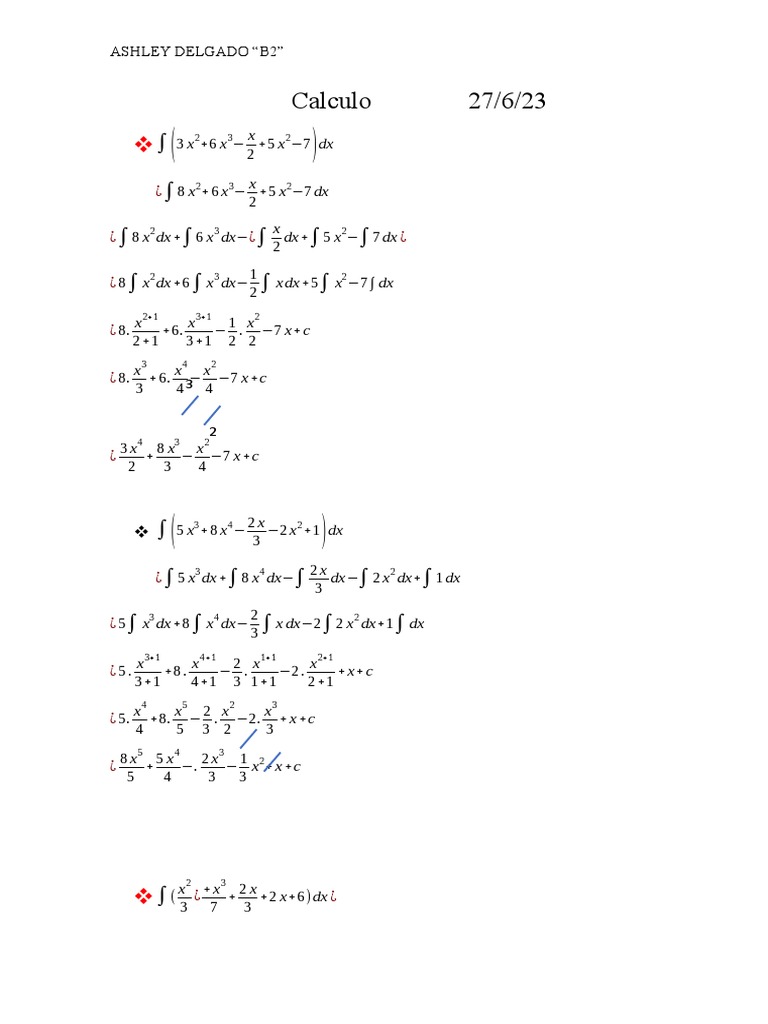 ASHLEY DELGADO “B2”
Calculo 27/6/23
❖ ∫ (3 x² + 6 x³ − x/2 + 5 x² − 7) dx
¿ ∫ 8 x² + 6 x³ − x/2 + 5 x² − 7 dx
¿ ∫ 8 x² dx + ∫ 6 x³ dx − ¿ ∫ x/2 dx + ∫ 5 x² − ∫ 7 dx ¿
¿ 8 ∫ x² dx + 6 ∫ x³ dx − 1/2 ∫ x dx + 5 ∫ x² − 7 ∫ dx
¿ 8. x²⁺¹/(2+1) + 6. x³⁺¹/(3+1) − 1/2 . x²/2 − 7 x + c
¿ 8. x³/3 + 6. x⁴/4 − x²/4 − 7 x + c
3
2
¿ 3 x⁴/2 + 8 x³/3 − x²/4 − 7 x + c
❖ ∫ (5 x³ + 8 x⁴ − 2 x/3 − 2 x² + 1) dx
¿ ∫ 5 x³ dx + ∫ 8 x⁴ dx − ∫ 2 x/3 dx − ∫ 2 x² dx + ∫ 1 dx
¿ 5 ∫ x³ dx + 8 ∫ x⁴ dx − 2/3 ∫ x dx − 2 ∫ 2 x² dx + 1 ∫ dx
¿ 5 . x³⁺¹/(3+1) + 8 . x⁴⁺¹/(4+1) − 2/3 . x¹⁺¹/(1+1) − 2 . x²⁺¹/(2+1) + x + c
¿ 5. x⁴/4 + 8. x⁵/5 − 2/3 . x²/2 − 2. x³/3 + x + c
¿ 8 x⁵/5 + 5 x⁴/4 − . 2 x³/3 − 1/3 x² + x + c
❖ ∫ ( x²/3 ¿ + x³/7 + 2 x/3 + 2 x + 6 ) dx ¿